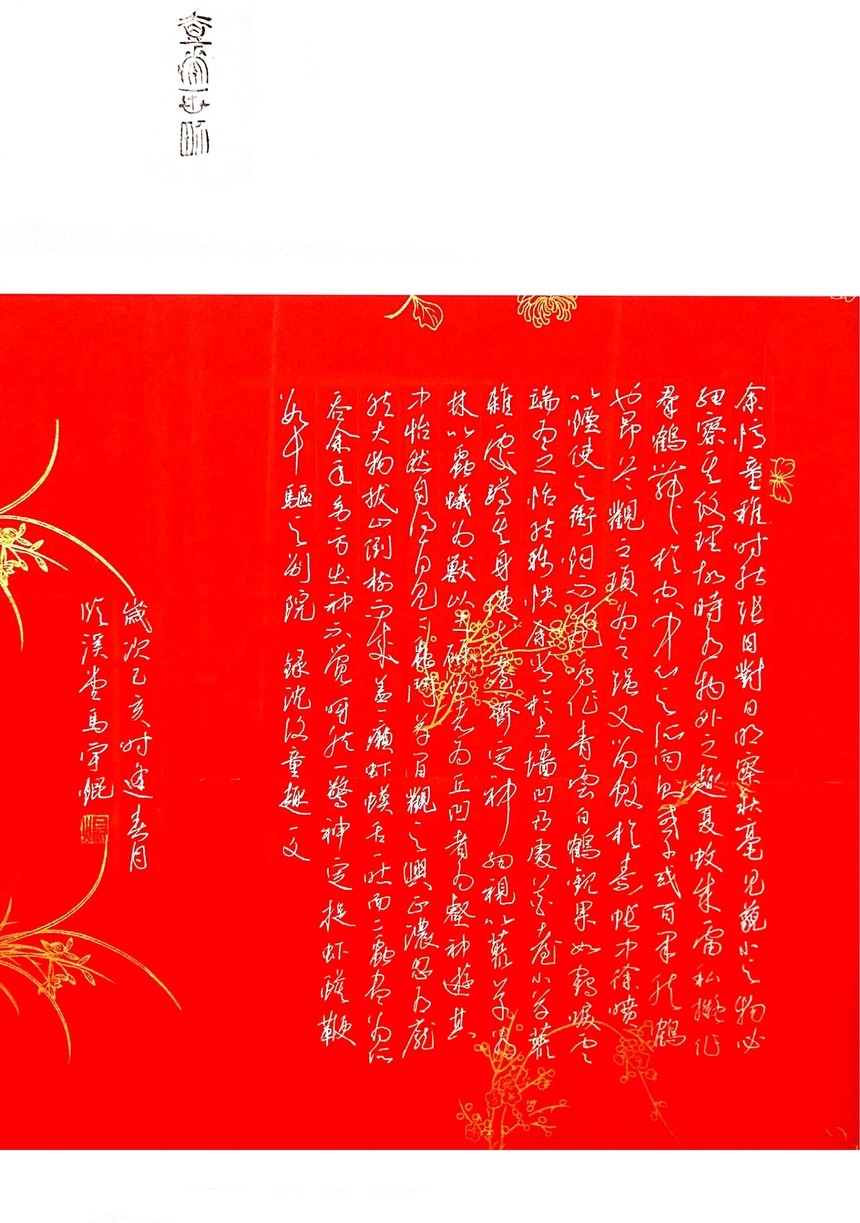 余憶童稚时能张目對日明察秋毫見藐小之物必
細察其紋理故時有物外之趣夏蚊成雷私擬作
羣鶴舞於空中心之所向則或千或百果然鶴
也昂首觀之項為之强又留蚊於素帐中徐噴
以煙使之衝烟而飛鳴作青雲白鶴觀果如鶴唳雲
端為之怡然称快余常於土墙凹凸處花臺小草叢
雜處蹲其身使與臺齊定神細視以叢草為
林以蟲蟻为獸以土礫凸者为丘凹者为壑神遊其
中怡然自得一日見二蟲鬥草間觀之興正濃忽有龐
然大物拔山倒樹而來蓋一癩虾蟆舌一吐而二蟲盡为所
吞余年幼方出神不覺呀然一驚神定捉虾蟆鞭
數十驅之别院 録沈復童趣一文
歲次己亥时逢春月
臨溪堂馬宇焜